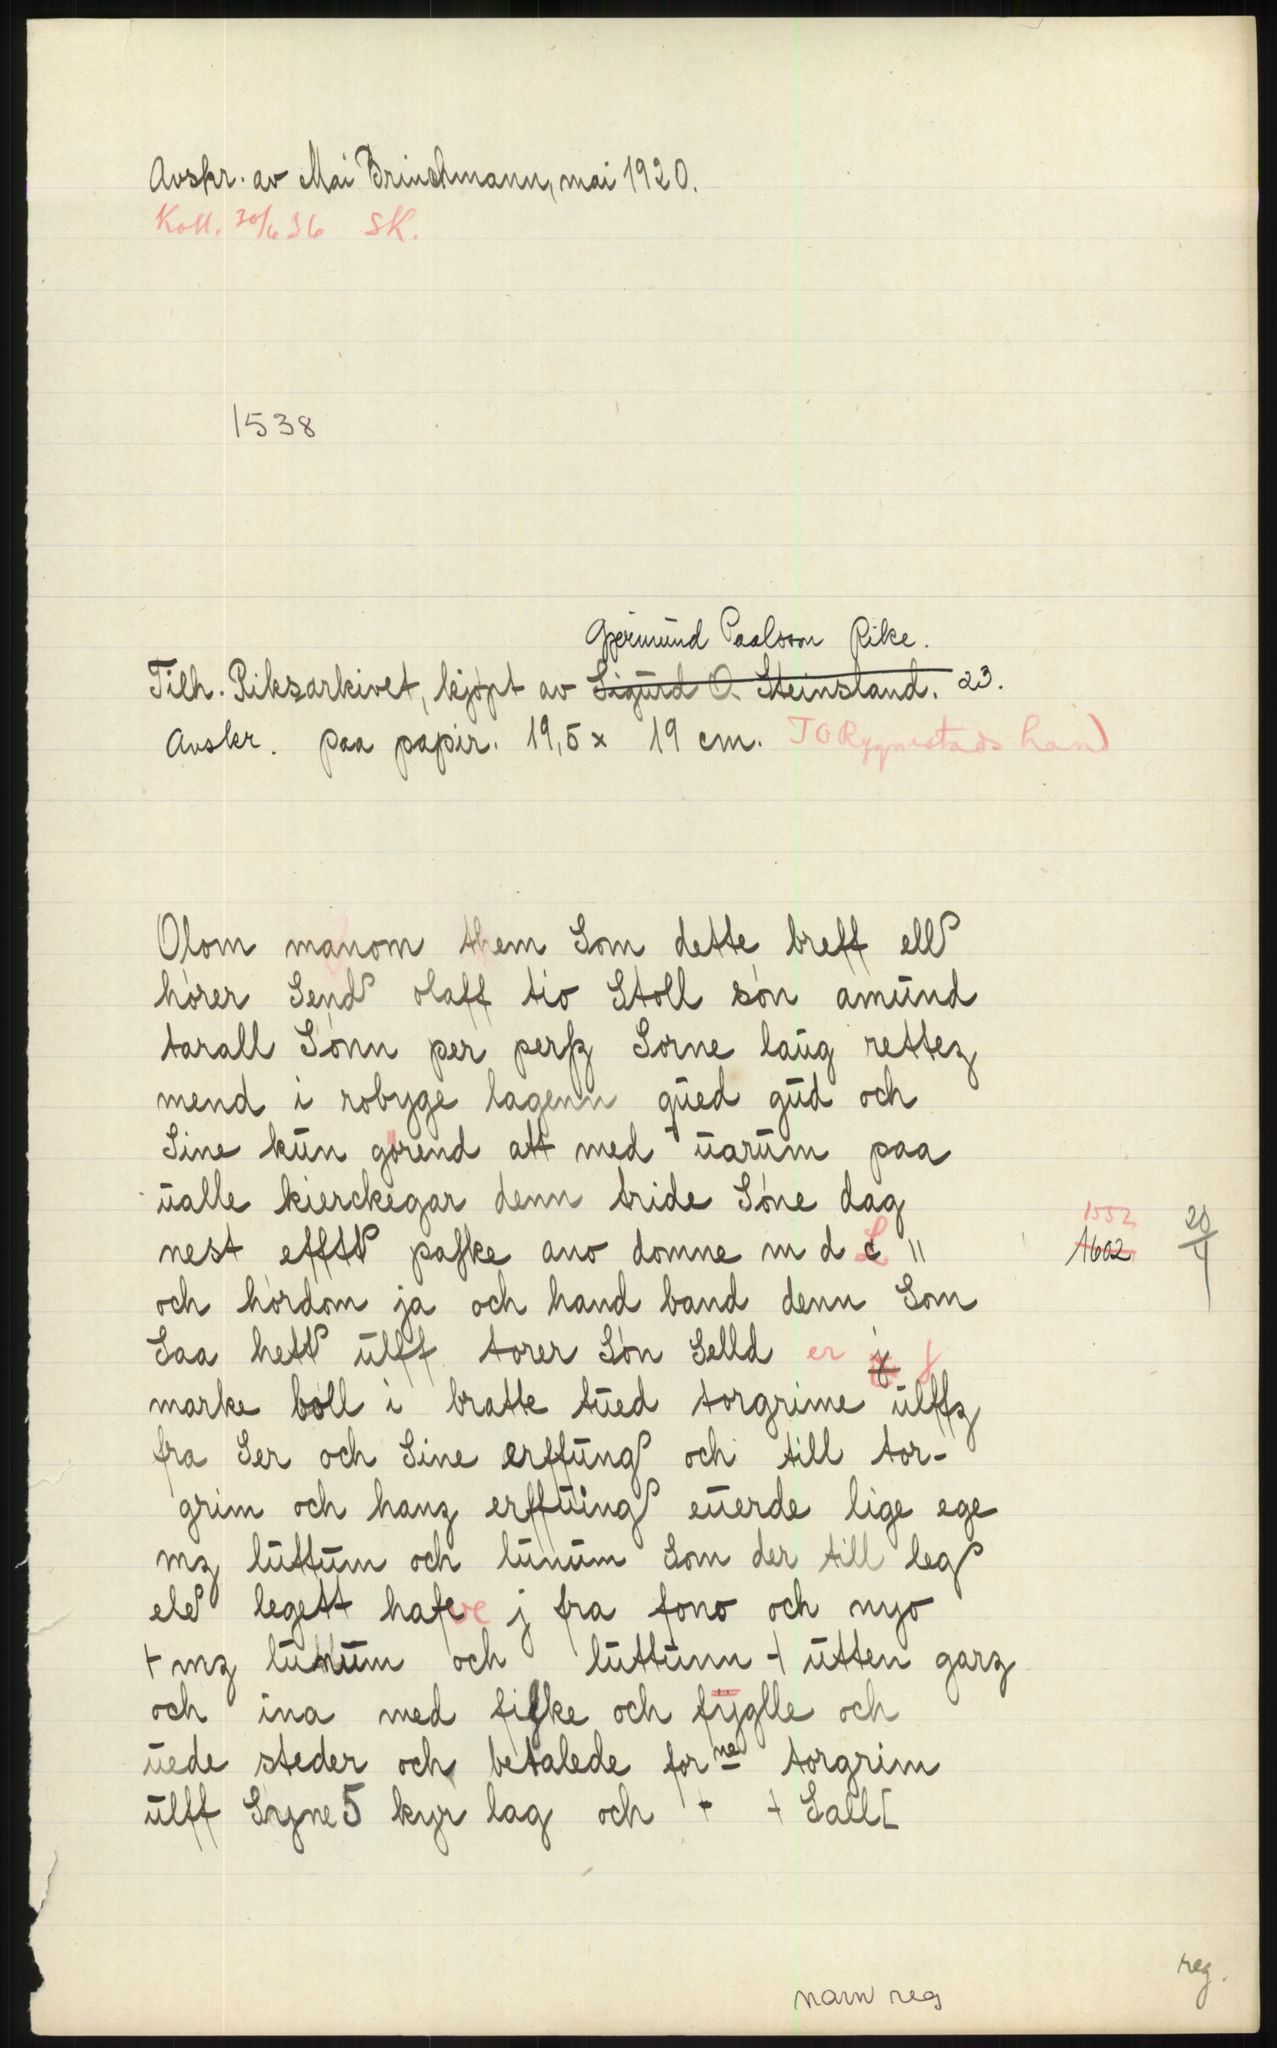 Avskr. av Mai Brinchmann, mai 1920.
Koll. 30/6 36 SK.
1538
Gjermund Paalsson Rike.
Tilh. Riksarkivet, kjøpt av Sigurd O. Steinsland. 23.
Avskr. paa papir. 19,5 x 19 cm. TO Rygnestads hand
Olom manom them Som dette breff ell
hører Send olaff tio Stoll søn amund
tarall Sønn per perßz Sorne laug rettez
mend i robygge lagenn qued gud och
Sine kun gørend att med uarum paa
ualle kierckegar denn tride Søne dag
nest efftt paſke ano domne m d L 11
1552
1602
20/4
och hørdom ja och hand band denn Som
Saa hett ulff torer Søn Selld er j
marke boll i bratte tued torgrime ulffz
fra Ser och Sine erffung och till tor-
grim och hanz erffuing euerde lige ege
mz luttum och lunum Som der till leg
ele legett hafve j fra fono och nyo
+ mz lunum och luttunn + utten garz
och ina med fiſke och fyglle och
uede steder och betalede for ne torgrim
ulff Syne 5 kyr lag och + + Sall[
reg.
navn reg